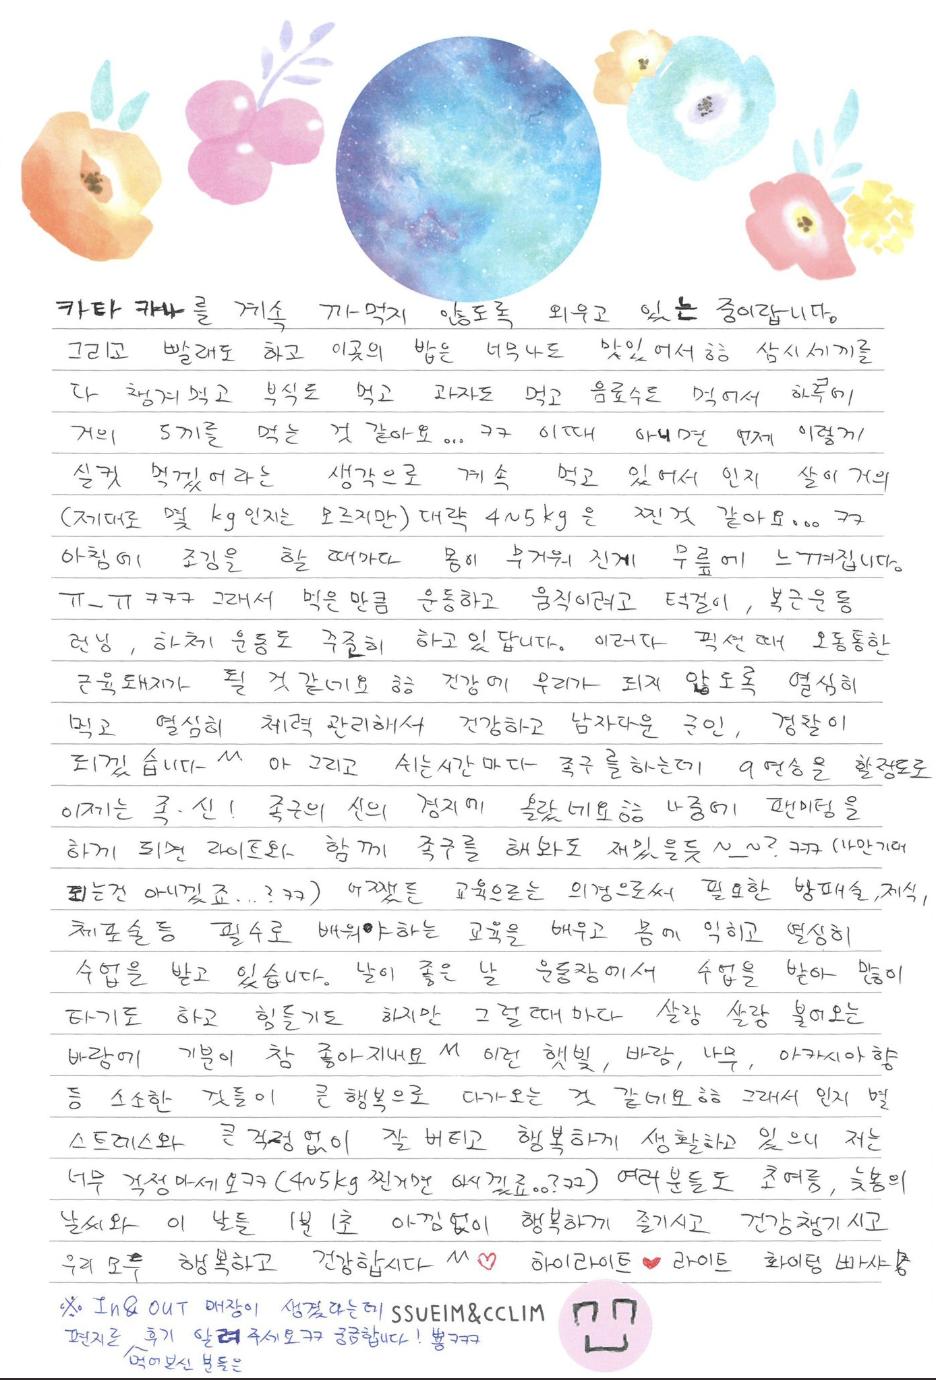 카타카나를 계속 까먹지 않도록 외우고 있는 중이랍니다.
그리고 빨래도 하고 이곳의 밥은 너무나도 맛있어서 ㅎㅎ 삼시세끼를
다 챙겨먹고 부식도 먹고 과자도 먹고 음료수도 먹어서 하루에
거의 5끼를 먹는 것 같아요... ㅋㅋ 이때 아니면 언제 이렇게
실컷 먹겠어라는 생각으로 계속 먹고 있어서 인지 살이 거의
(제대로 몇 kg인지는 모르지만) 대략 4~5kg은 찐것 같아요... ㅋㅋ
아침에 조깅을 할 때마다 몸이 무거워 진게 무릎에 느껴집니다.
ㅠ_ㅠ ㅋㅋㅋ 그래서 먹은만큼 운동하고 움직이려고 턱걸이, 복근운동
런닝, 하체 운동도 꾸준히 하고있답니다. 이러다 픽션때 오동통한
근육돼지가 될 것 같네요 ㅎㅎ 건강에 무리가 되지 않도록 열심히
먹고 열심히 체력 관리해서 건강하고 남자다운 군인, 경찰이
되겠습니다^^ 아 그리고 쉬는시간마다 족구를하는데 9연승을 할정도로
이제는 족·신! 족구의 신의 경지에 올랐네요 ㅎㅎ 나중에 팬미팅을
하게 되면 라이트와 함께 족구를 해봐도 재밌을듯 ~_~? ㅋㅋㅋ (나만기대
되는건 아니겠죠...? ㅋㅋ) 어쨌든 교육으로는 의경으로써 필요한 방패술, 제식,
체포술등 필수로 배워야하는 교육을 배우고 몸에 익히고 열심히
수업을 받고 있습니다. 날이 좋은 날 운동장에서 수업을 받아 많이
타기도 하고 힘들기도 하지만 그럴때마다 살랑 살랑 불어오는
바람에 기분이 참 좋아지네요^^ 이런 햇빛, 바람, 나무, 아카시아향
등 소소한 것들이 큰행복으로 다가오는 것 같네요 ㅎㅎ 그래서 인지 별
스트레스와 큰걱정없이 잘 버티고 행복하게 생활하고 있으니 저는
너무 걱정마세요 ㅋㅋ (4~5kg 찐거면 아시겠죠..? ㅋㅋ) 여러분들도 초여름, 늦봄의
날씨와 이 날들 1분 1초 아낌없이 행복하게 즐기시고 건강챙기시고
우리 모두 행복하고 건강합시다^^♡ 하이라이트♥라이트 화이팅 빠샤!
※ In& OUT 매장이 생겼다는데 SSUEIM&CCLIM
편지로 후기 알려주세요 ㅋㅋ 궁금합니다! 뿅 ㅋㅋㅋ
먹어보신 분들은